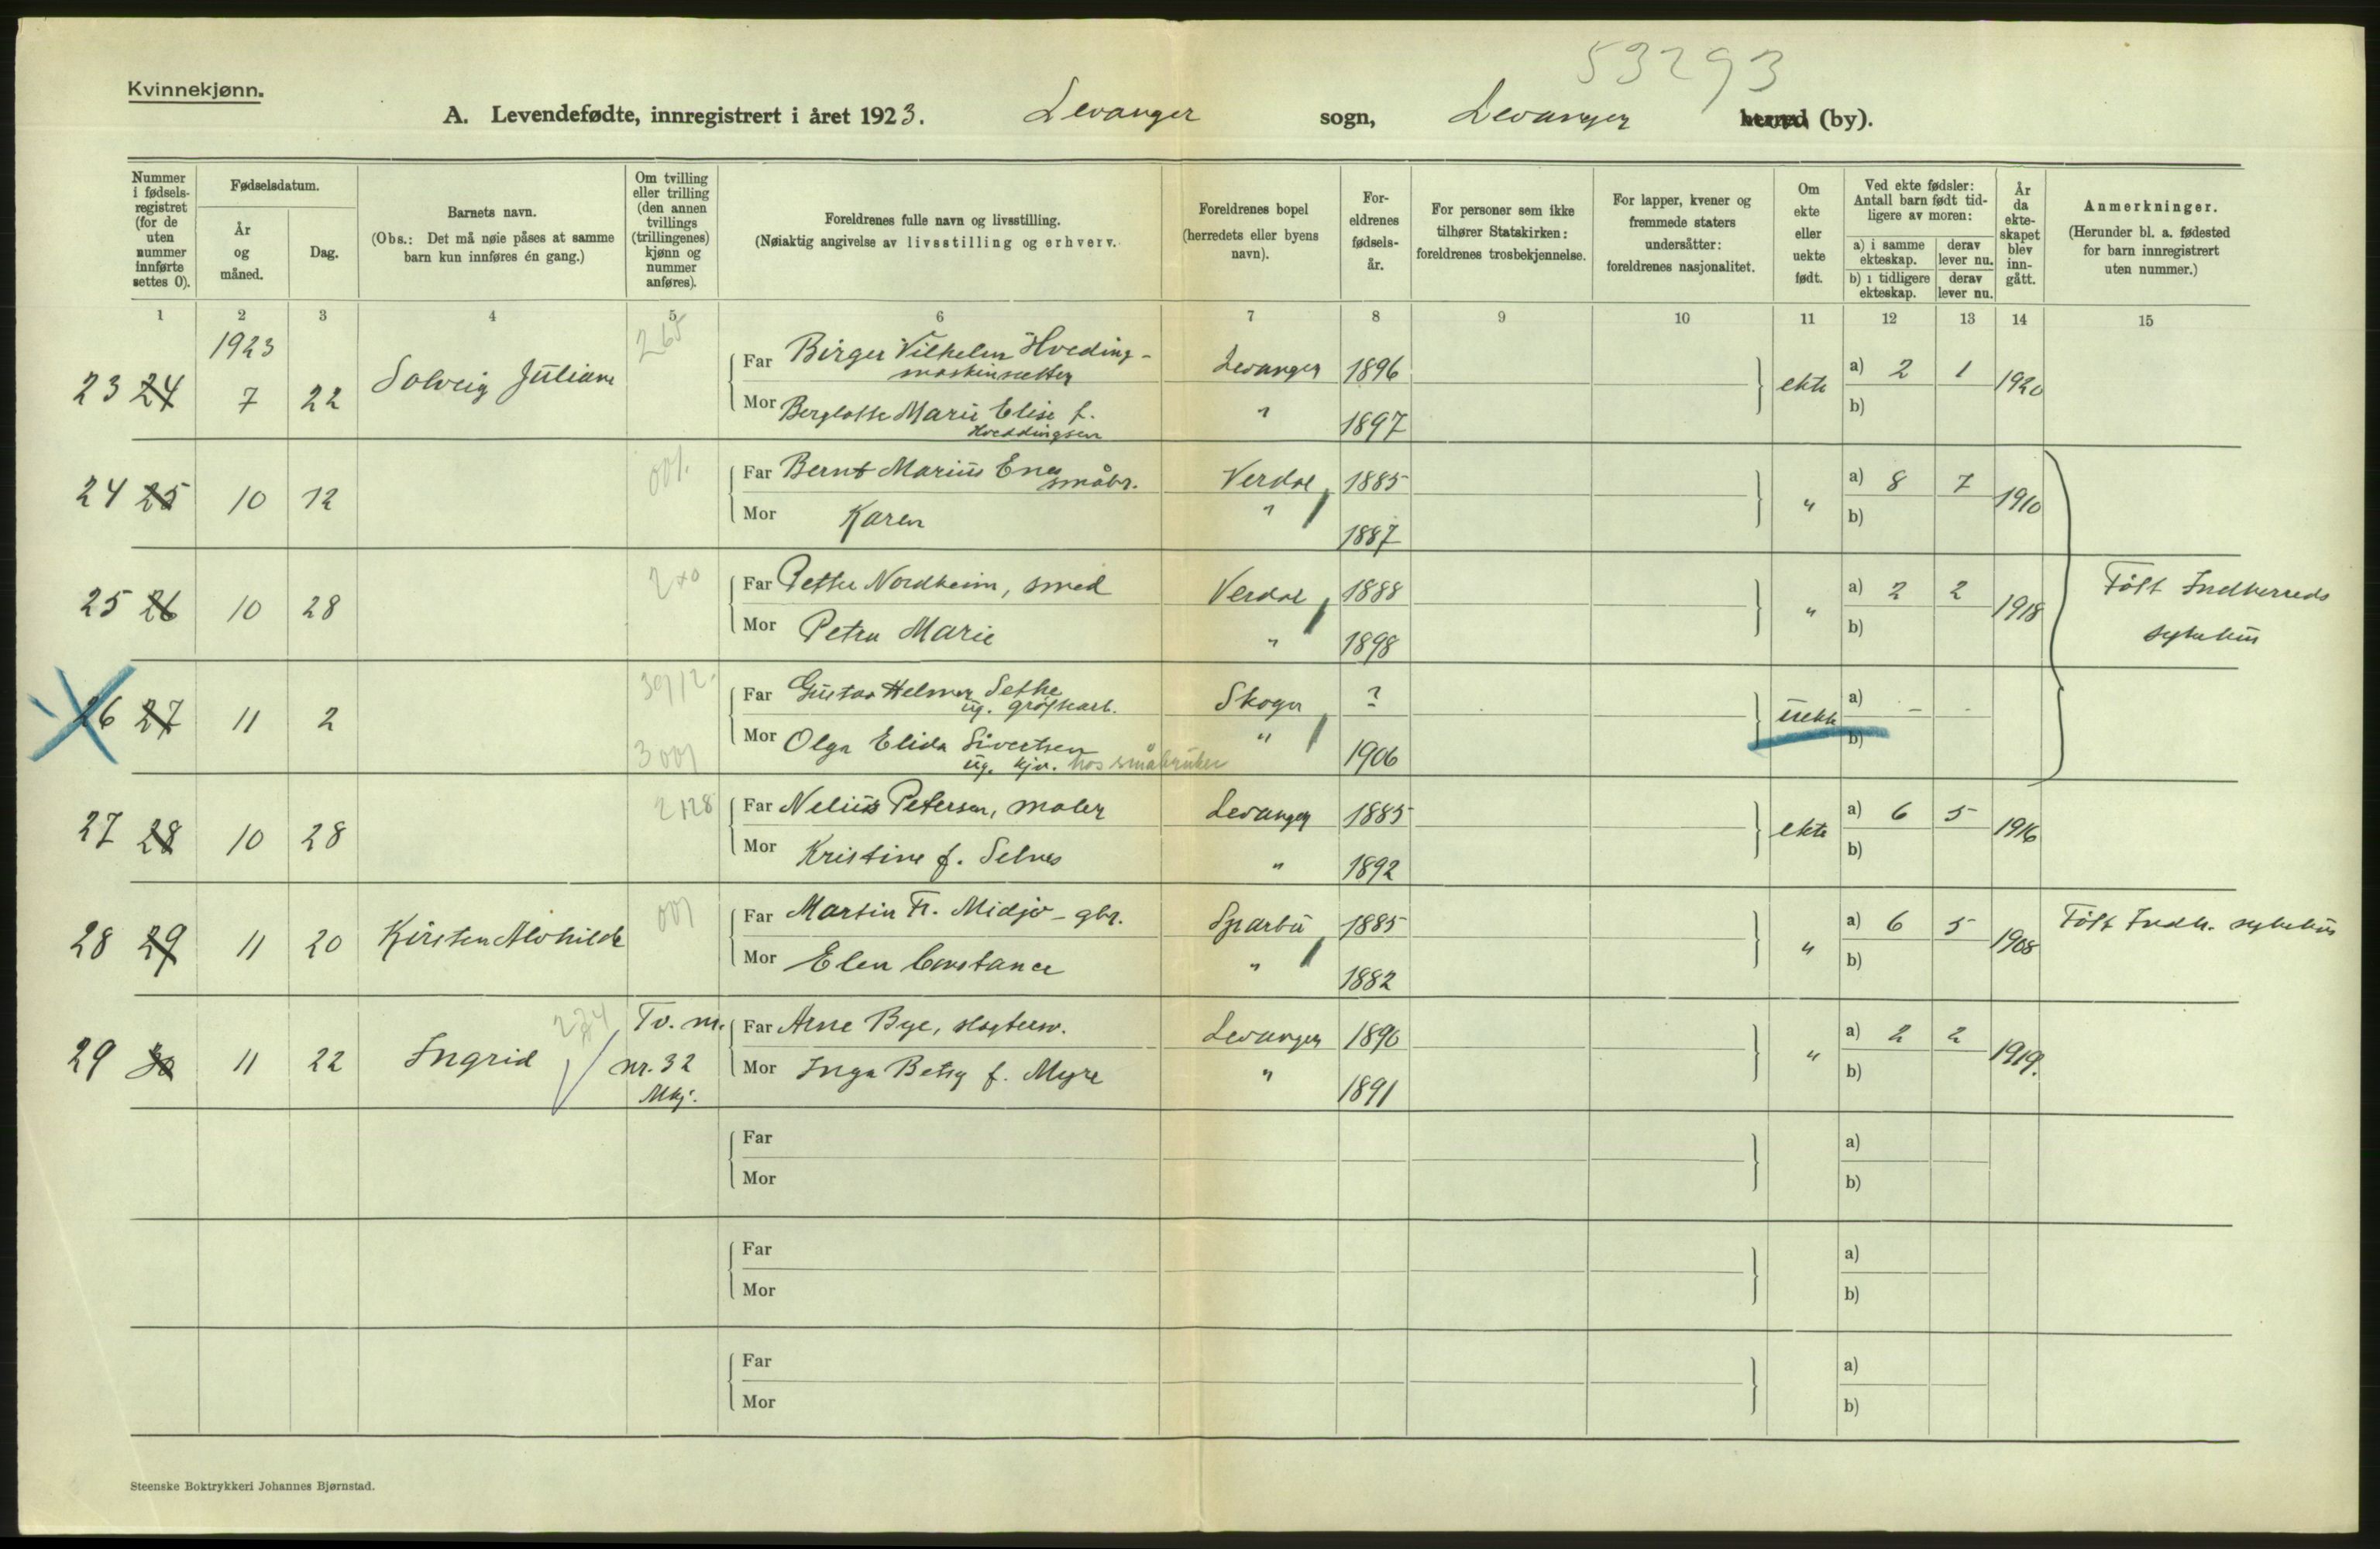 53293
Kvinnekjønn.
A. Levendefødte, innregistrert i året 1923. Levanger sogn, Levanger herred (by).
Nummer i fødsels-registret (for de uten nummer innførte settes 0).
Fødselsdatum.
År og måned.
Dag.
Barnets navn.
(Obs.: Det må nøie påses at samme barn kun innføres én gang.)
Om tvilling eller trilling (den annen tvillings (trillingenes) kjønn og nummer anføres).
Foreldrenes fulle navn og livsstilling.
(Nøiaktig angivelse av livsstilling og erhverv.
Foreldrenes bopel (herredets eller byens navn).
For-eldrenes fødsels-år.
For personer som ikke tilhører Statskirken: foreldrenes trosbekjennelse.
For lapper, kvener og fremmede staters undersåtter: foreldrenes nasjonalitet.
Om ekte eller uekte født.
Ved ekte fødsler: Antall barn født tidligere av moren:
a) i samme ekteskap. derav lever nu.
b) i tidligere ekteskap. derav lever nu.
År da ekte-skapet blev inn-gått.
Anmerkninger.
(Herunder bl. a. fødested for barn innregistrert uten nummer.)
1 2 3 4 5 6 7 8 9 10 11 12 13 14 15
1923
265
23 24 7 22 Solveig Juliane
Far Birger Vilhelm Hveding - Levanger 1896 ekte a) 2 1 1920
maskinsetter
Mor Berglotte Marie Elise f. " 1897 b)
Hveddingsen
24 25 10 12 001
Far Bernt Marius Enes Verdal 1885 " a) 8 7 1910
småbr.
Mor Karen " 1887 b)
25 26 10 28
Far Petter Nordheim, smed Verdal 1888 " a) 2 2 1918
Mor Petra Marie " 1898 b)
Født Indherreds
sykehus
26 27 11 2
Far Gustav Helmer Sethe Skogn ? uekte a) - -
ug. grøftearb.
Mor Olga Elida Sivertsen " 1906 b)
3001 ug. kjø. hos småbruker
27 28 10 28 2128
Far Nelius Petersen, maler Levanger 1885 ekte a) 6 5 1916
Mor Kristine f. Selnes " 1892 b)
28 29 11 20 Kirsten Alvhilde 001
Far Martin Fr. Midjo - gbr. Sparbu 1885 " a) 6 5 1908 Født Indh. sykehus
Mor Elen Constance " 1882 b)
29 30 11 22 Ingrid 234 Tv. m. nr. 32 Mkj.
Far Arne Bye, slagterm. Levanger 1890 " a) 2 2 1919.
Mor Inga Betsy f. Myre " 1891 b)
Far a)
Mor b)
Far a)
Mor b)
Far a)
Mor b)
Steenske Boktrykkeri Johannes Bjørnstad.